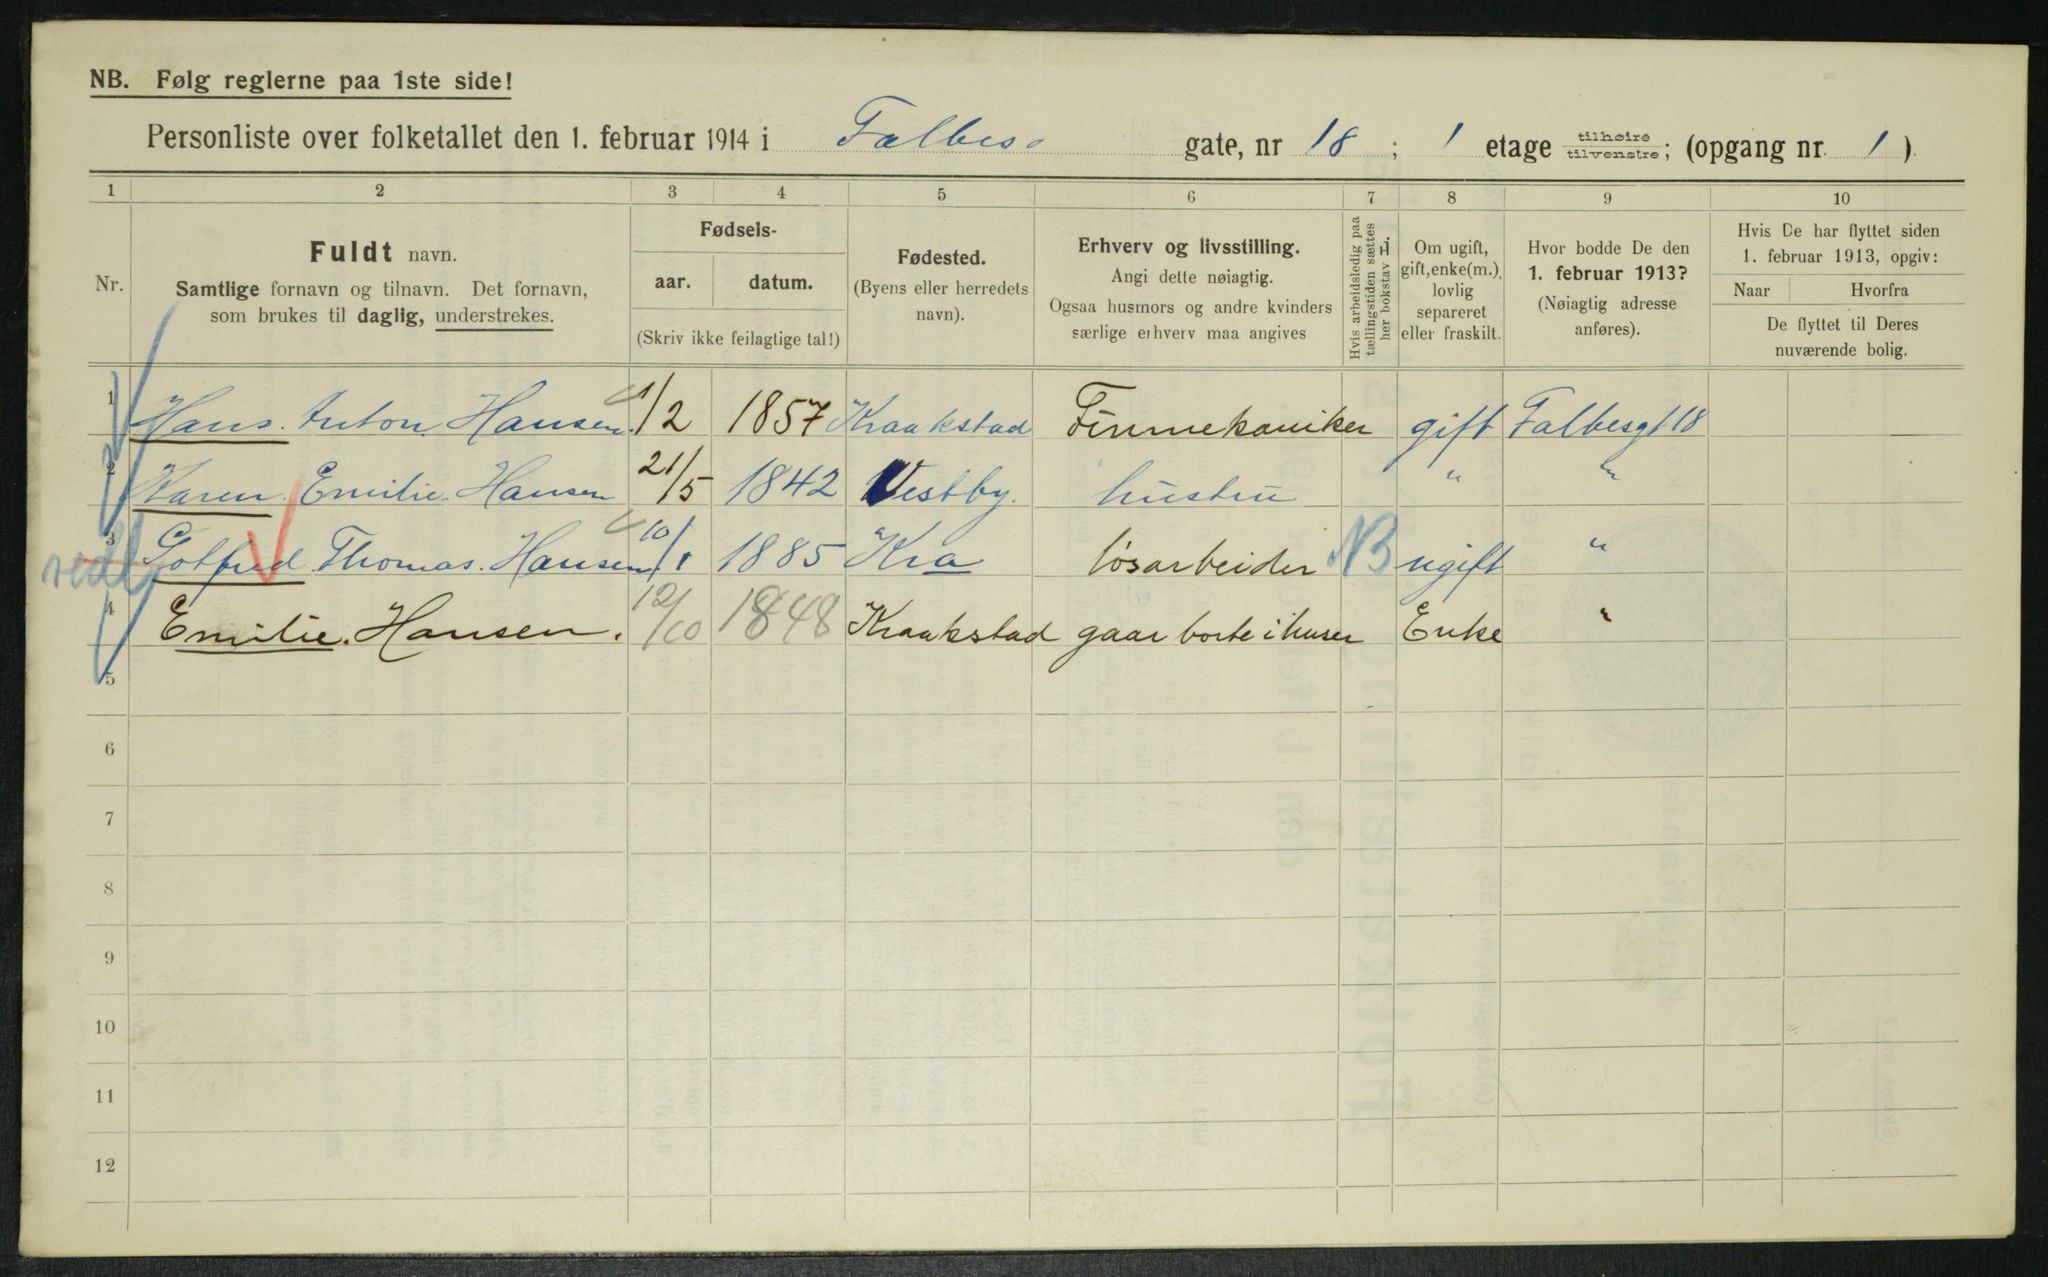 NB. Følg reglerne paa 1ste side!
Personliste over folketallet den 1. februar 1914 i Falbes gate, nr 18 ; 1 etage tilhøire tilvenstre; (opgang nr. 1 ).
1 2 3 4 5 6 7 8 9 10
Nr.
Fuldt navn.
Samtlige fornavn og tilnavn. Det fornavn,
som brukes til daglig, understrekes.
Fødsels-
aar. datum.
(Skriv ikke feilagtige tal!)
Fødested.
(Byens eller herredets
navn).
Erhverv og livsstilling.
Angi dette nøiagtig.
Ogsaa husmors og andre kvinders
særlige erhverv maa angives
Hvis arbeidsledig paa
tællingstiden sættes
her bokstav H.
Om ugift,
gift, enke(m.),
lovlig
separeret
eller fraskilt.
Hvor bodde De den
1. februar 1913?
(Nøiagtig adresse
anføres).
Hvis De har flyttet siden
1. februar 1913, opgiv:
Naar Hvorfra
De flyttet til Deres
nuværende bolig.
1 Hans. Anton Hansen 1/2 1857 Kraakstad Finmekaniker gift Falbesgt 18
2 Karen. Emilie. Hansen 21/5 1842 Vestby. hustru " "
3 Gotfred Thomas. Hansen 10/1 1885 Kra løsarbeider NB ugift "
4 Emilie. Hansen. 12/10 1848 Kraakstad gaar borte i huser Enke "
5
6
7
8
9
10
11
12